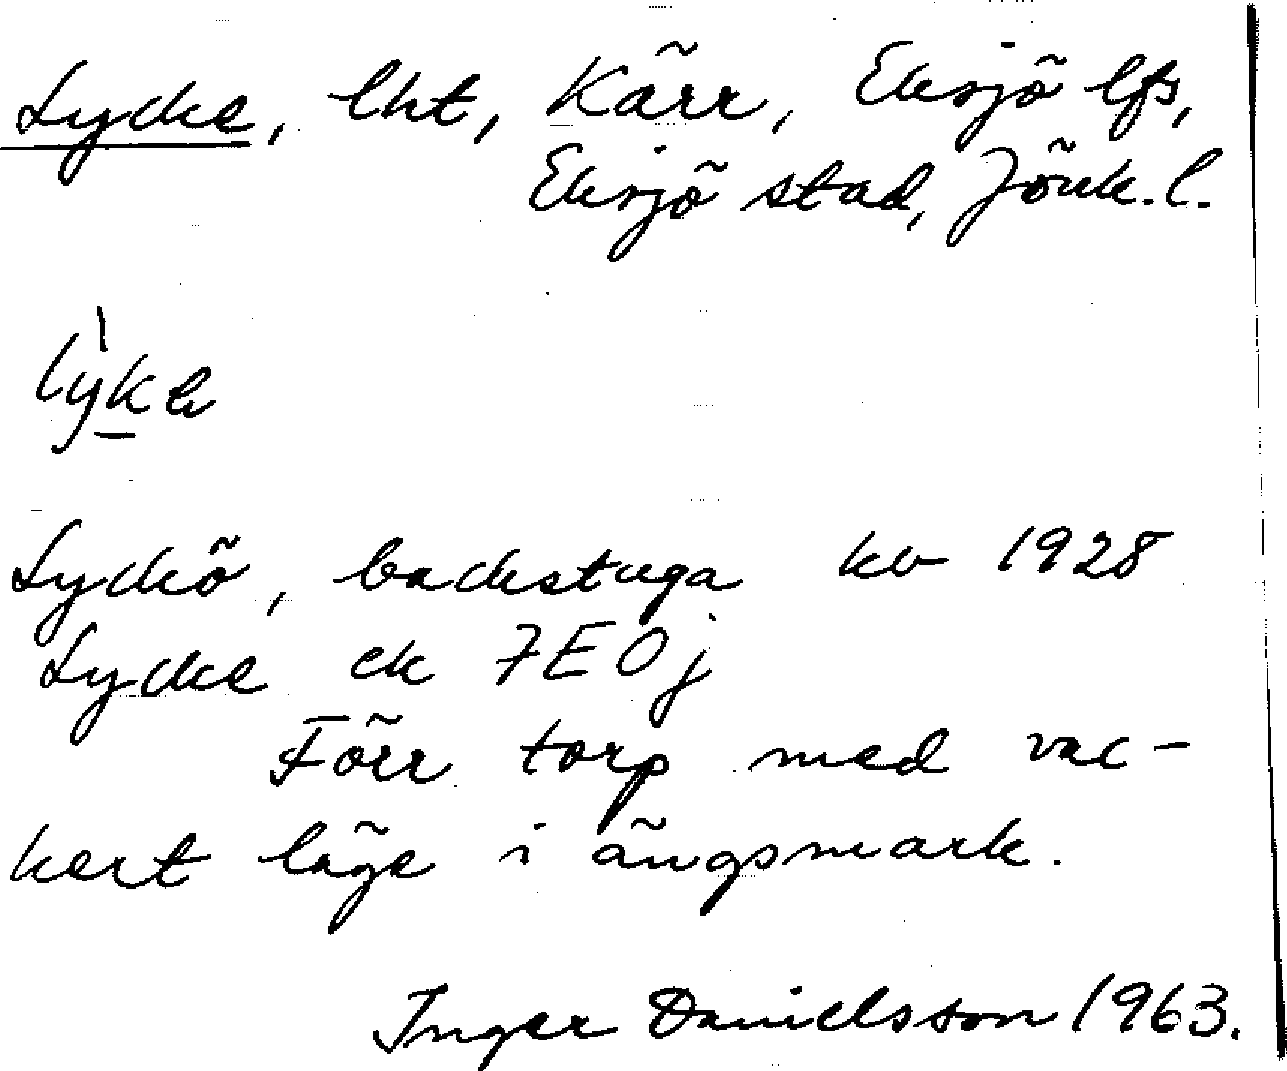 Lycke, lht, Kärr, Eksjö lfs,
Eksjö stad, Jönk.l.
Lyckö, backstuga kv 1928
Lycke ek 7E0j
Förr torp med vac-
kert läge i ängsmark.
Inger Danielsson 1963.